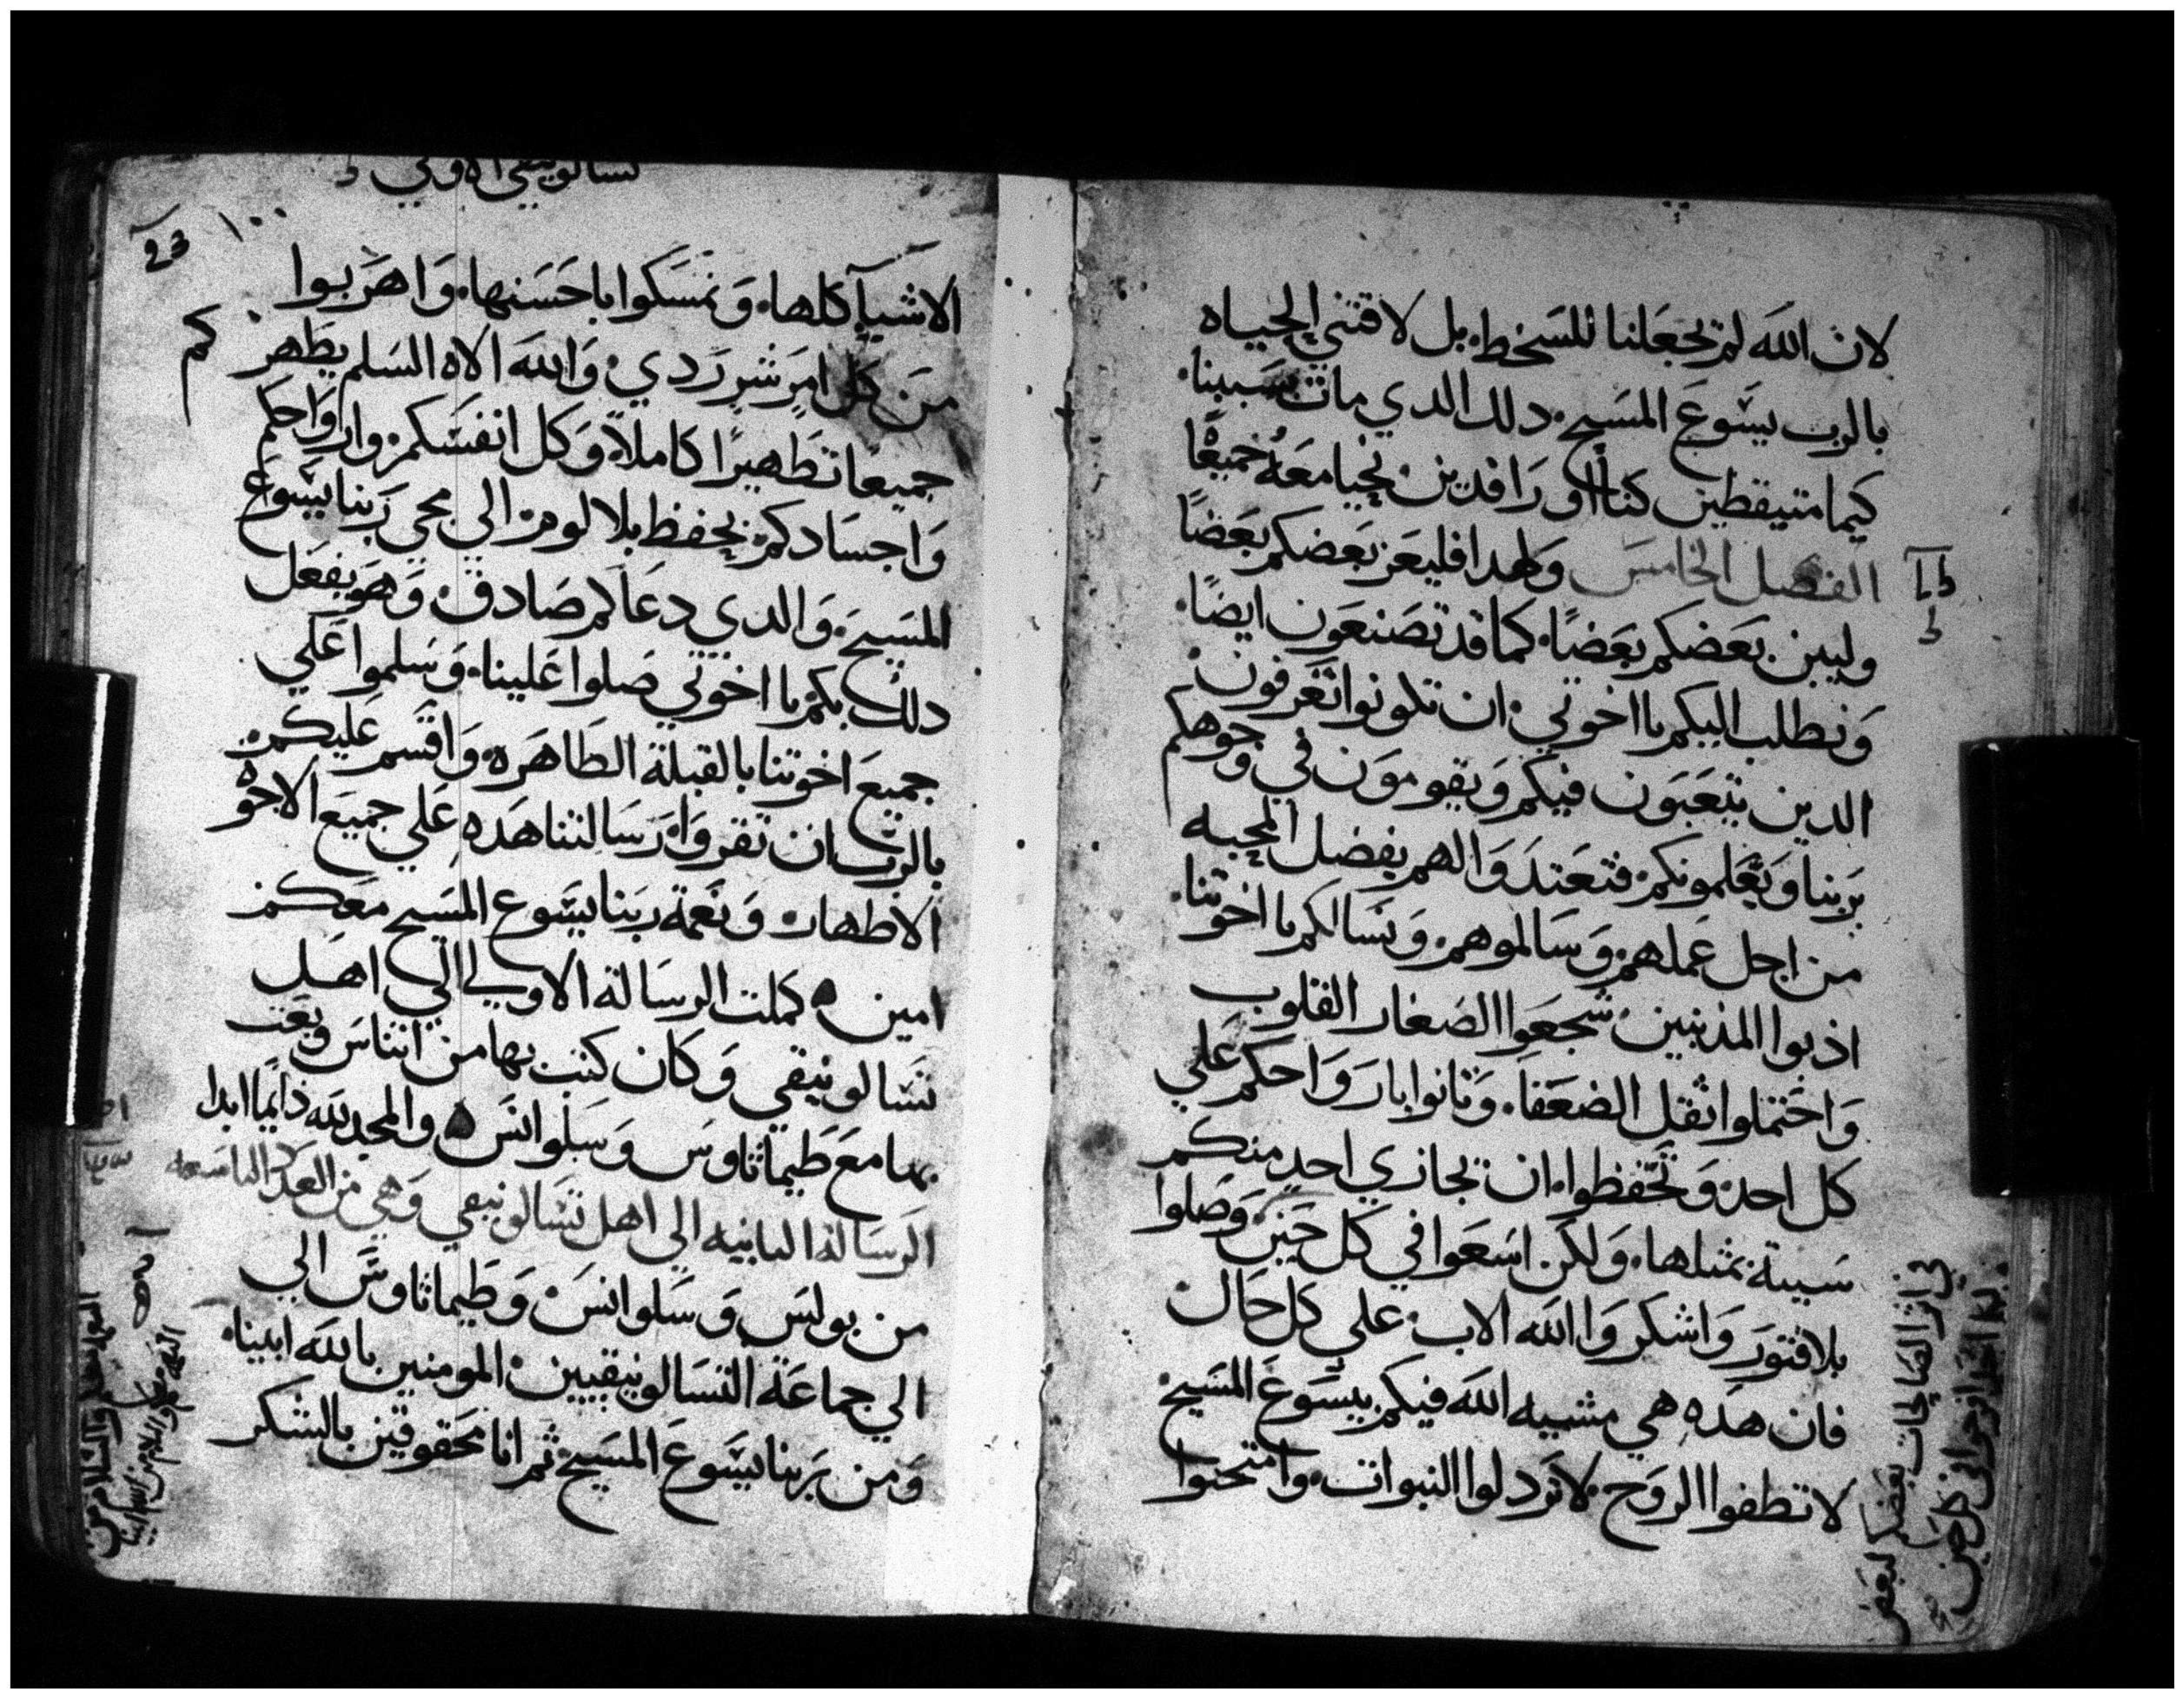 لان الله لم يجعلنا للسخط بل لاقتني الحياه
بالرب يسوع المسيح دلك الدي مات بسببنا
كيما متيقظين كنا او راقدين نحيا معه جميعًا
الفصل الخامس ولهدا فليعز بعضكم بعضًا
وليبن بعضكم بعضًا كما قد تصنعون ايضًا
ونطلب اليكم يا اخوتي ان تكونوا تعرفون
الدين يتعبون فيكم ويقومون في وجوهكم
بربنا ويعلمونكم فتعتدوا لهم بفضل المحبه
من اجل عملهم وسالموهم ونسالكم يا اخوتنا
اذبوا المذنبين شجعوا الصغار القلوب
واحتملوا ثقل الضعفا وتانوا بارواحكم علي
كل احد وتحفظوا ان يجازي احد منكم
سيية بمثلها ولكن اسعوا في كل حين وصلوا
بلا فتور واشكروا الله الاب علي كل حال
فان هده هي مشييه الله فيكم بيسوع المسيح
لا تطفوا الروح لا تردلوا النبوات وامتحنوا
في اثر الصالحات بعضكم لبعض
تسالونيقي الاولي
23 ١٠٠
الاشيا كلها وتمسكوا باحسنها واهربوا
من كل امر شر ردي والله الاه السلم يطهركم
جميعًا تطهيرًا كاملاً وكل انفسكم وارواحكم
واجسادكم يحفظ بلا لوم الي مجي ربنا يسوع
المسيح والدي دعاكم صادق وهو يفعل
دلك بكم يا اخوتي صلوا علينا وسلموا علي
جميع اخوتنا بالقبلة الطاهره واقسم عليكم
بالرب ان تقروا رسالتنا هده علي جميع الاخوة
الاطهار ونعمة ربنا يسوع المسيح معكم
امين كملت الرسالة الاولي الي اهل
تسالونيقي وكان كتب بها من اتناس وبعت
بها مع طيماثاوس وسلوانس والمجد لله دايمًا ابدا
الرسالة التانيه الي اهل تسالونيقي وهي من العدد التاسعه
من بولس وسلوانس وطيماثاوس الي
الي جماعة التسالونيقيين المومنين بالله ابينا
ومن بربنا يسوع المسيح ثم انا محقوقين بالشكر